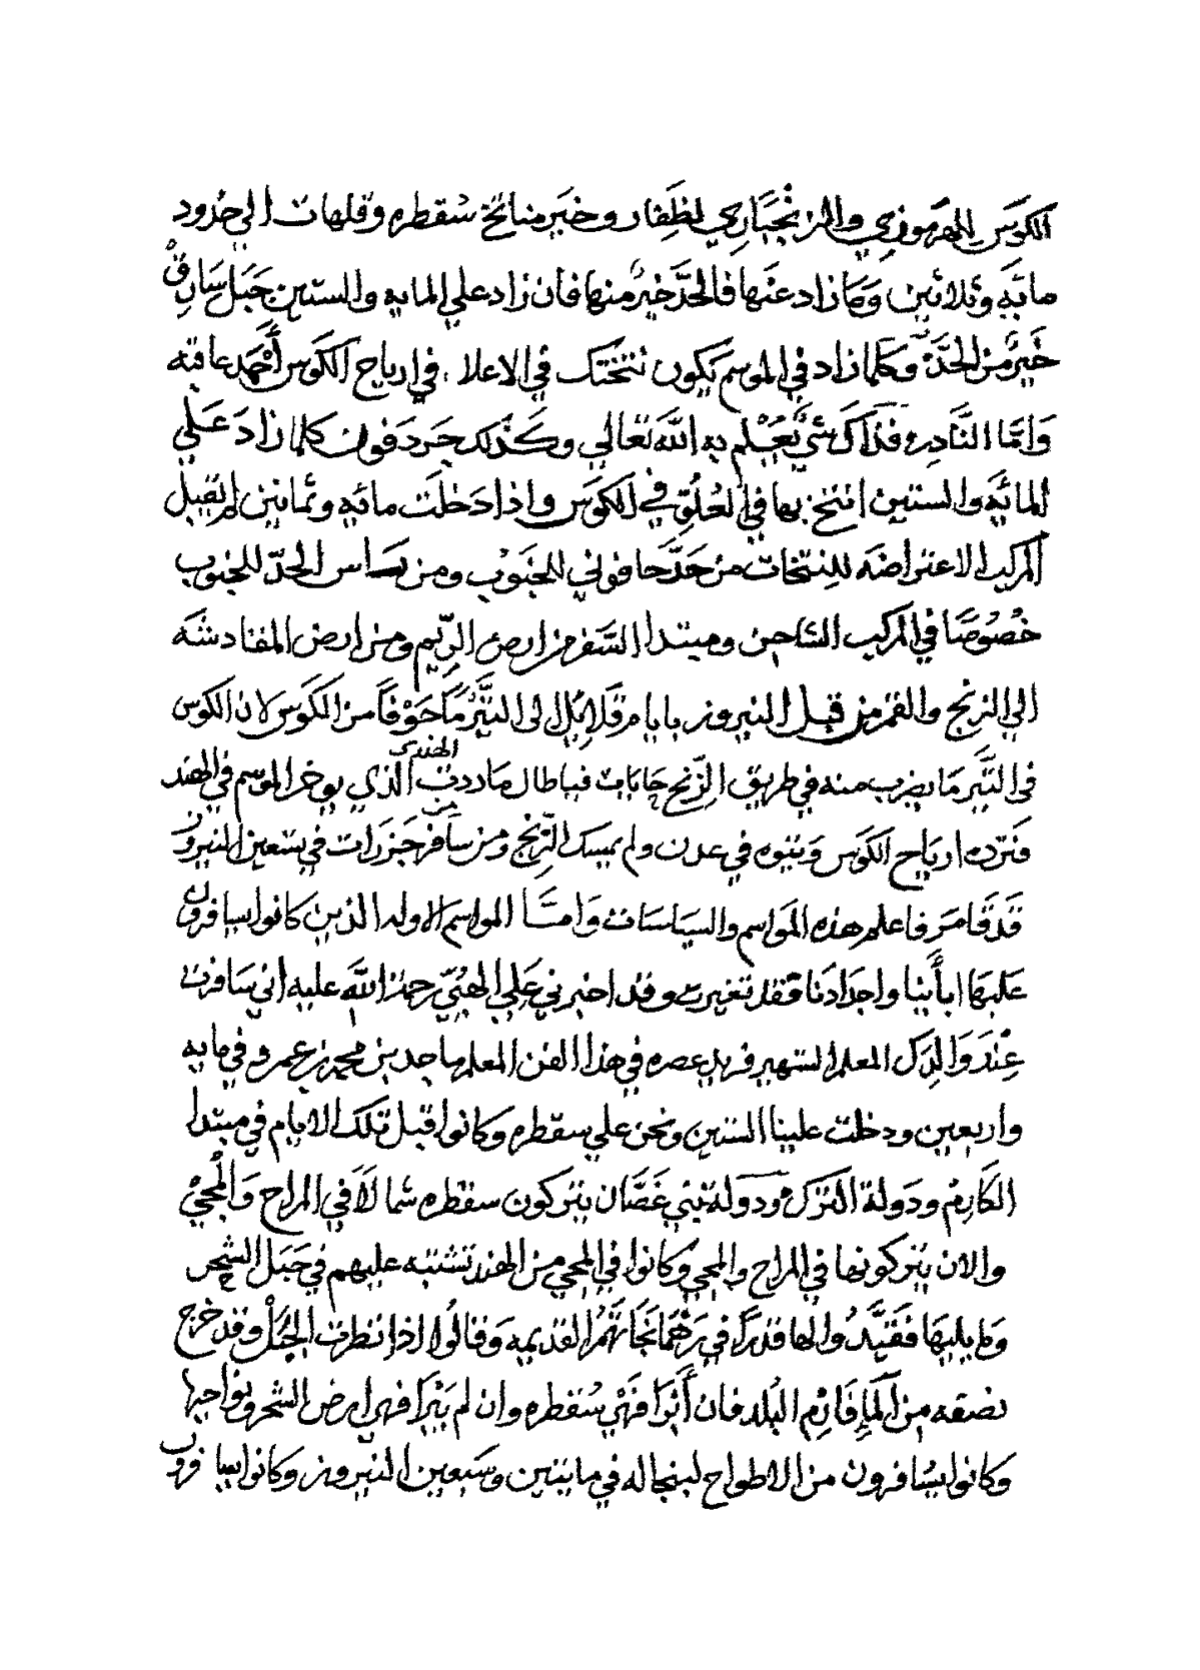 الكوس للهرموزي والزنجباري لظفار وخير مناتخ سقطره وقلهات الي حدود
مايه وثلاثين وما زاد عنها فالحد خير منها فان زاد علي المايه والستين جبل سارق
خير من الحد وكلما زاد في الموسم تكون نتختك في الاعلا في ارياح الكوس أحمد عاقبه
وانما النادره فذاك شي يعلم به الله تعالي وكذلك جردفون كلما زاد علي
المائه والستين انتخ بها في العلق في الكوس واذا دخلت مائه وثمانين لم تقبل
المركب الاعتراضه للنتخات من حد حافوني للجنوب ومن راس الحد للجنوب
خصوصا في المركب الشاحن ومبتدا السفر من ارض الريم ومن ارض المقنادشه
الي الزنج والقمر من قبل النيروز بايام قلايل الي التيرما خوفا من الكوس لان الكوس
في التيرما يضرب منه في طريق الزنج جابات فيا طال ما ردت الهندي الذي يوخر الموسم في الهند
فترده ارياح الكوس وبنوه في عدن ولم يمسك الزنج ومن سافر من جزرات في تسعين النيروز
قد قامر فاعلم هذه المواسم والسياسات وامــا المواسم الاوله الذين كانوا يسافرون
عليها ابأينا واجدادنا فقد تغيرت وقد اخبرني علي الهبي رحمة الله عليه اني سافرت
عند والدك المعلم الشهير فريد عصره في هذا الفن المعلم ماجد بن محمد بن عمرو في مايه
واربعين ودخلت علينا الستين ونحن علي سقطره وكانوا قبل تلك الايام في مبتدا
الكارم ودولة الترك ودولة بني غصان يتركون سقطره شمالا في المراح والمجي
والان يتركونها في المراح والمجي وكانوا في المجي من الهند تشتبه عليهم في جبل الشحر
وما يليها فقيدوا لها قدرا في رهمانجاتهم القديمه وقالوا اذا نظرت الجبل وقد خرج
نصفه من المإ فارم البلد فان أبرا فهي سقطره وان لم يبرا فهي ارض الشحر ونواحيها
وكانوا يسافرون من الاطواح لبنجاله في مايتين وسبعين النيروز وكانوا يسافرون